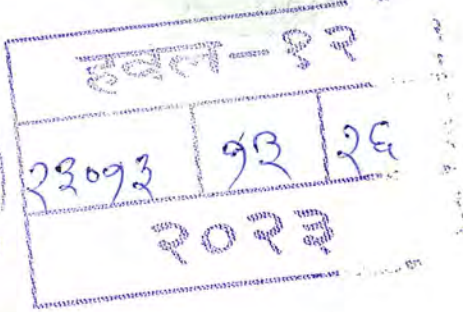 हवल-१२
२३०१३ १३ २६
२०२३